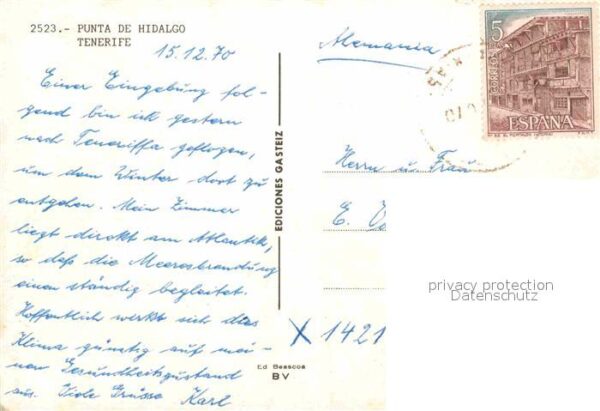 2523.- PUNTA DE HIDALGO
TENERIFE
15.12.70
Einer Eingebung fol-
gend bin ich gestern
nach Teneriffa geflogen,
um dem Winter dort zu
entgehen. Mein Zimmer
liegt direkt am Atlantik,
so daß die Meeresbrandung
einen ständig begleitet.
Hoffentlich wirkt sich das
Klima günstig auf mei-
nen Gesundheitszustand
aus. Viele Grüsse Karl
EDICIONES GASTEIZ
Ed Bascoa
BV
Alemania
5
CORREOS
ESPAÑA
Herrn u. Frau
E.
X 1421
privacy protection
Datenschutz